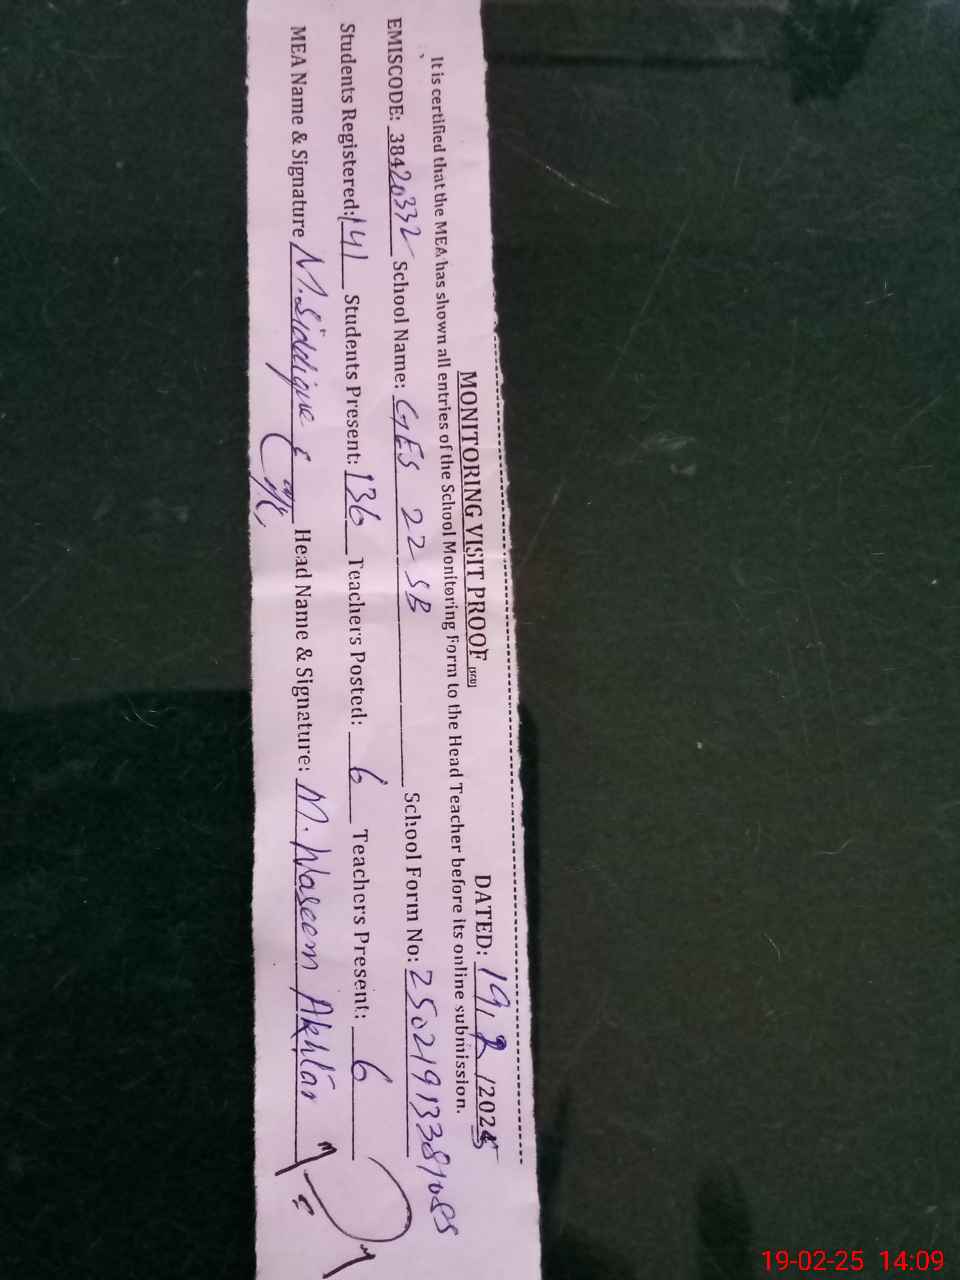 MONITORING VISIT PROOF [SGD] DATED: 19, 2 /2025
It is certified that the MEA has shown all entries of the School Monitoring Form to the Head Teacher before its online submission.
EMISCODE: 38420332 School Name: GES 22 SB School Form No: 25021913381085
Students Registered: 141 Students Present: 136 Teachers Posted: 6 Teachers Present: 6
MEA Name & Signature M. Siddique Head Name & Signature: M. Waseem Akhtar
19-02-25 14:09